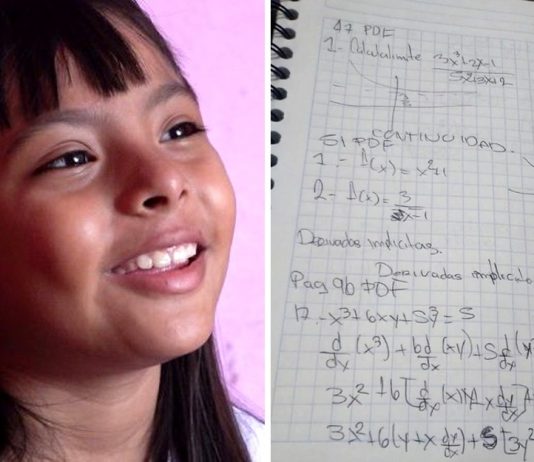 47 PDF
1- Calcula limite 3x³+2x-1 / 5x²+3x+2
51 PDF CONTINUIDAD.
1.- f(x) = x²+1
2- f(x) = 3 / x-1
Derivadas implicitas.
Derivadas implicita
Pag 96 PDF
17.- x³+6xy+5y³=5
d/dx (x³) + 6d/dx (xy) + 5 d/dx (y
3x² + 6[d/dx (x)y + x dy/dx]+
3x²+6(y+x dy/dx)+5[3y²